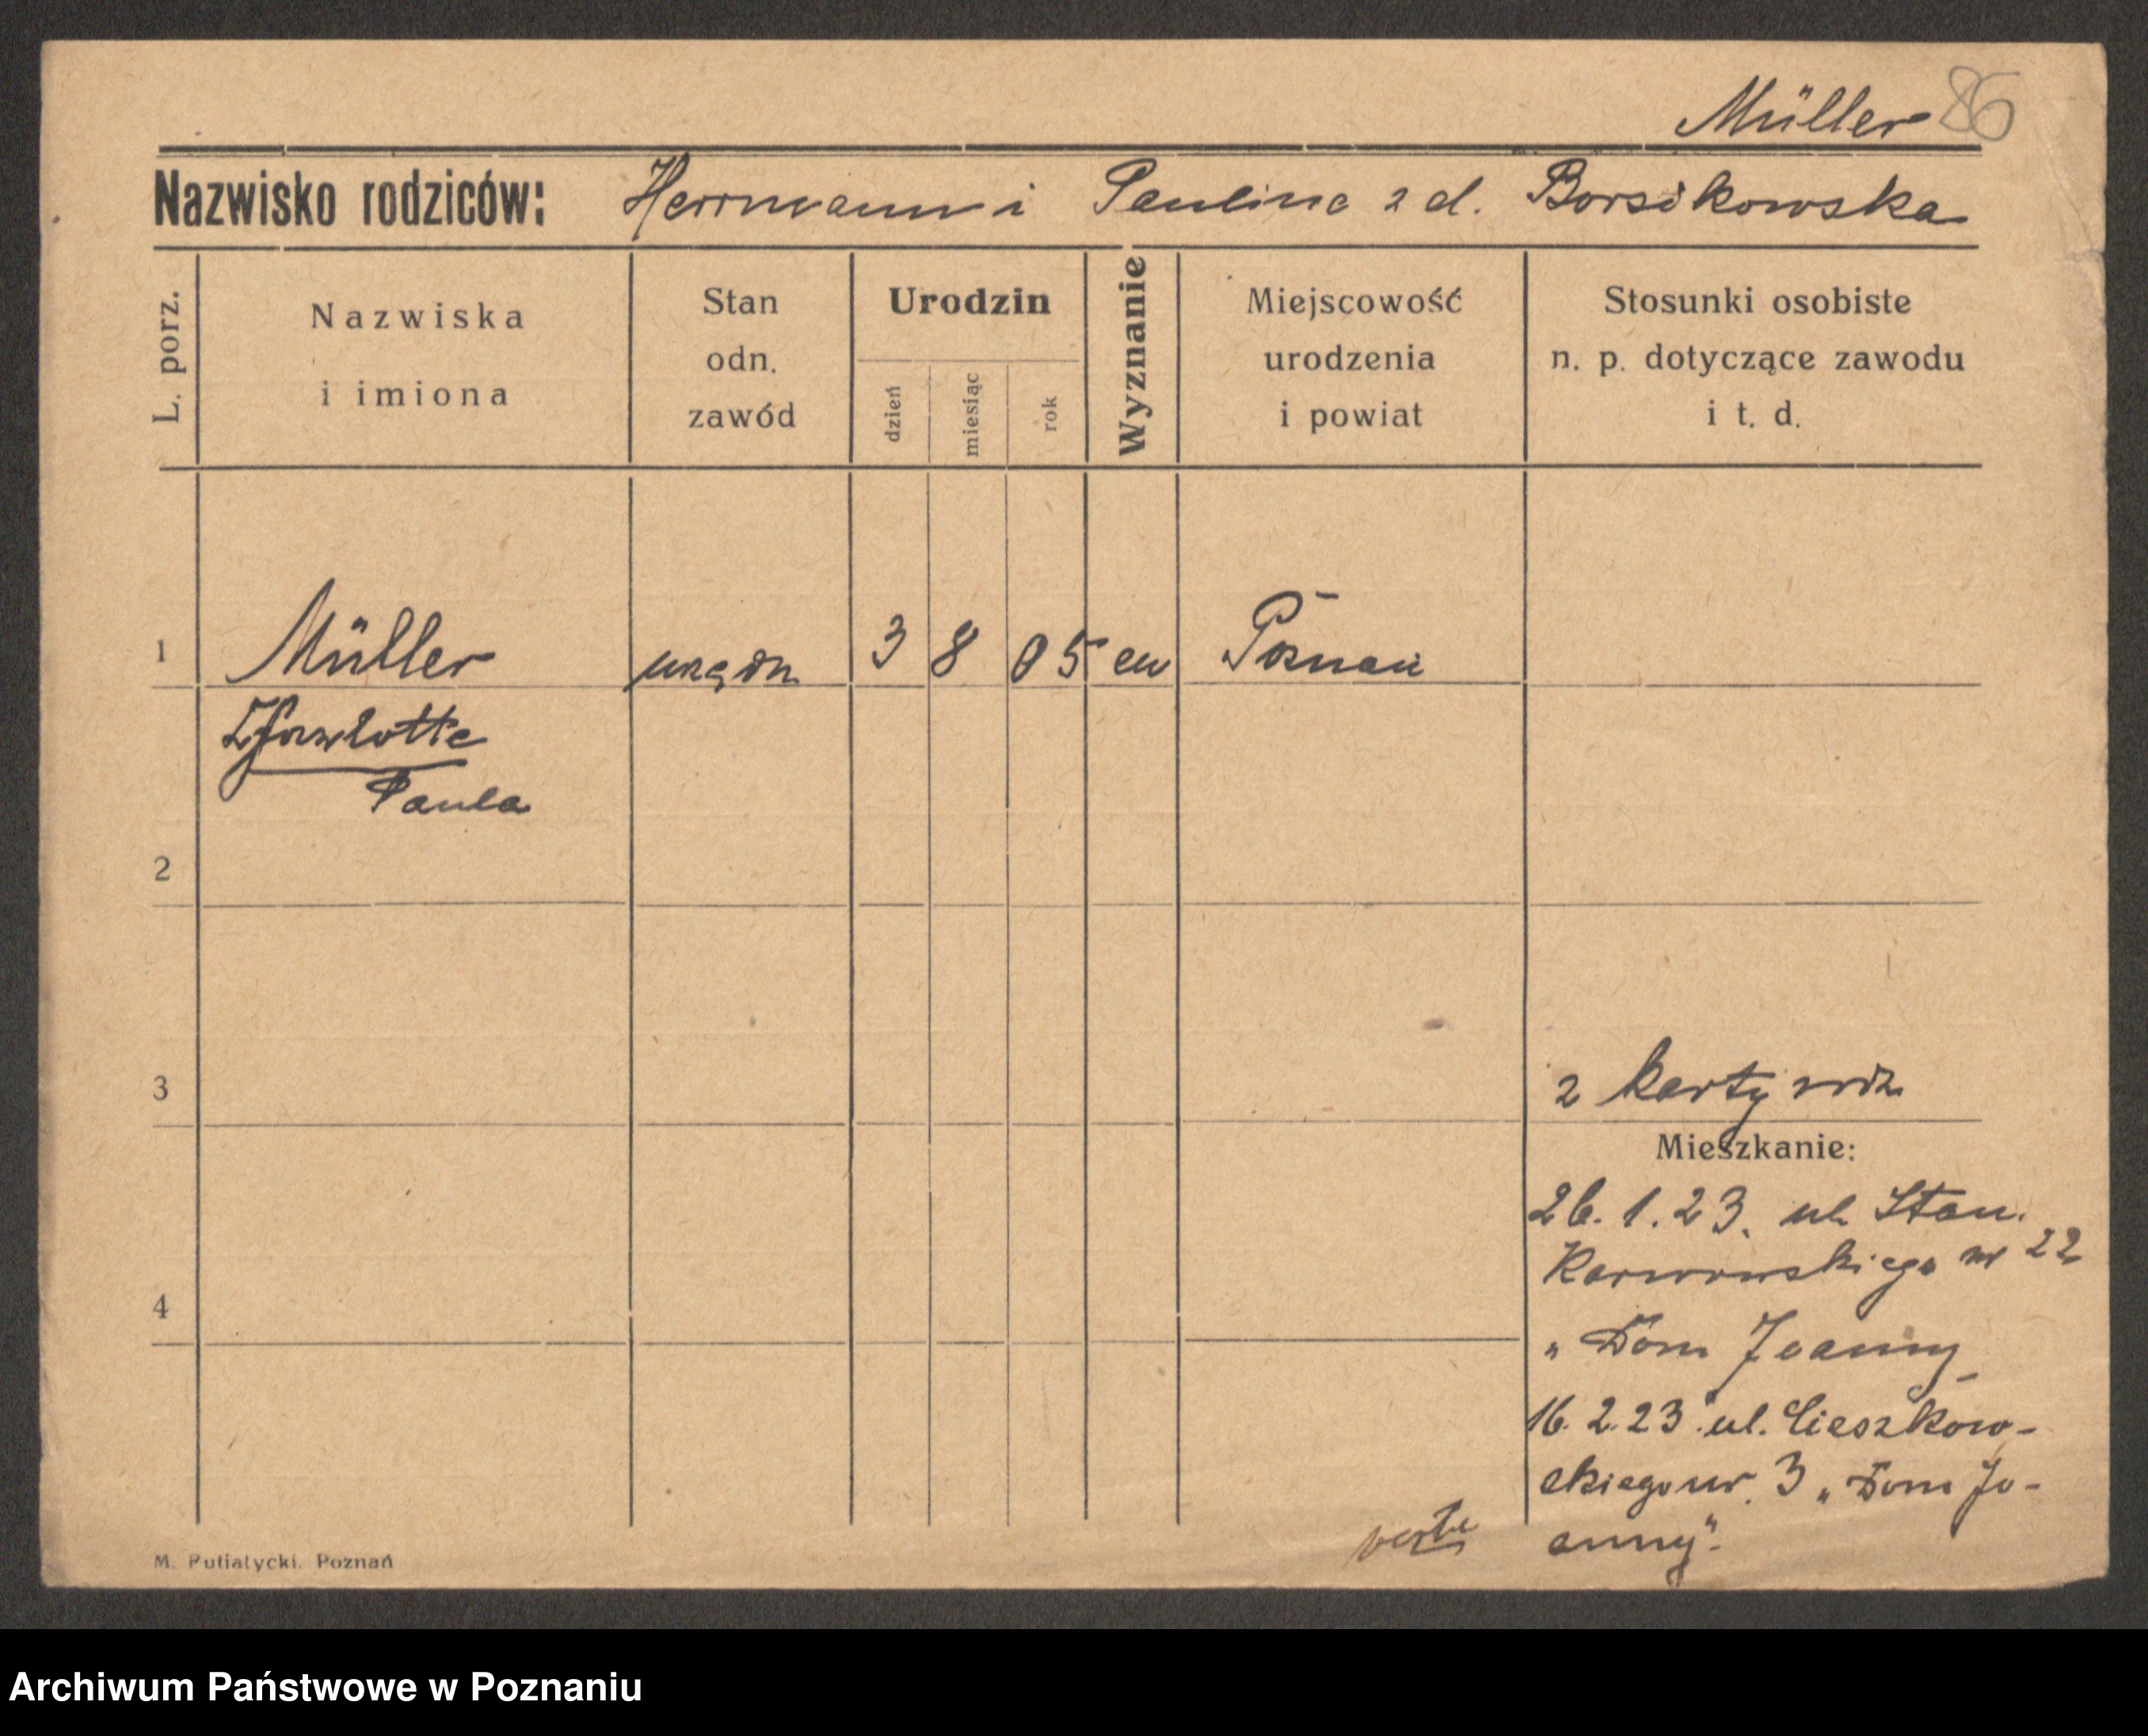 Müller 86
Nazwisko rodziców: Herrmann i Pauline z d. Borsikowska
L. porz.
Nazwiska
i imiona
Stan
odn.
zawód
Urodzin
dzień
miesiąc
rok
Wyznanie
Miejscowość
urodzenia
i powiat
Stosunki osobiste
n. p. dotyczące zawodu
i t. d.
1 Müller urzędn 3 8 05 ew Poznań
Paula
2
3
z karty rodz
Mieszkanie:
26. 1. 23. ul. Stan.
Karwowskiego nr 22
4
„ Dom Joanny
16. 2. 23. ul. Cieszkow-
skiego nr. 3 „Dom Jo-
anny".
verte
M. Putiatycki. Poznań
Archiwum Państwowe w Poznaniu